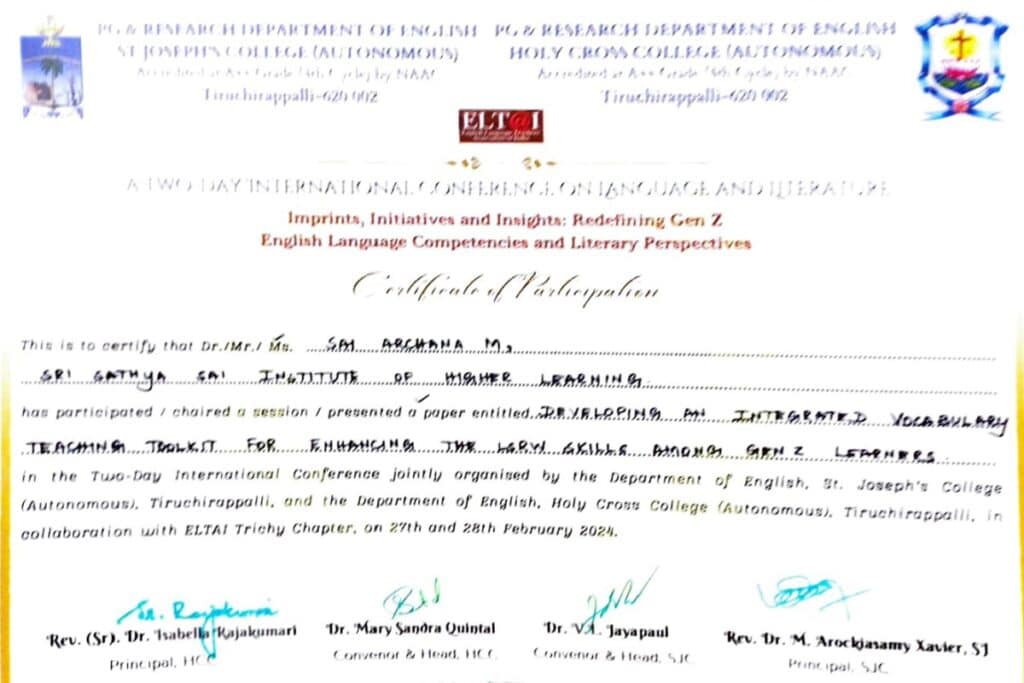 PG & RESEARCH DEPARTMENT OF ENGLISH
ST JOSEPH'S COLLEGE (AUTONOMOUS)
Accredited at A++ Grade (4th Cycle) by NAAC
Tiruchirappalli-620 002
PG & RESEARCH DEPARTMENT OF ENGLISH
HOLY CROSS COLLEGE (AUTONOMOUS)
Accredited at A++ Grade (4th Cycle) by NAAC
Tiruchirappalli-620 002
ELT@I
English Language Teachers'
Association of India
A TWO-DAY INTERNATIONAL CONFERENCE ON LANGUAGE AND LITERATURE
Imprints, Initiatives and Insights: Redefining Gen Z
English Language Competencies and Literary Perspectives
Certificate of Participation
This is to certify that Dr./Mr./ Ms. SAI ARCHANA M,
SRI SATHYA SAI INSTITUTE OF HIGHER LEARNING
has participated / chaired a session / presented a paper entitled DEVELOPING AN INTEGRATED VOCABULARY
TEACHING TOOLKIT FOR ENHANCING THE LSRW SKILLS AMONG GEN Z LEARNERS
in the Two-Day International Conference jointly organised by the Department of English, St. Joseph's College
(Autonomous), Tiruchirappalli, and the Department of English, Holy Cross College (Autonomous), Tiruchirappalli, in
collaboration with ELTAI Trichy Chapter, on 27th and 28th February 2024.
Sr. Rajakumari
Rev. (Sr). Dr. Isabella Rajakumari
Principal, HCC
Dr. Mary Sandra Quintal
Convenor & Head, HCC
Dr. V.L. Jayapaul
Convenor & Head, SJC
Rev. Dr. M. Arockiasamy Xavier, SJ
Principal, SJC